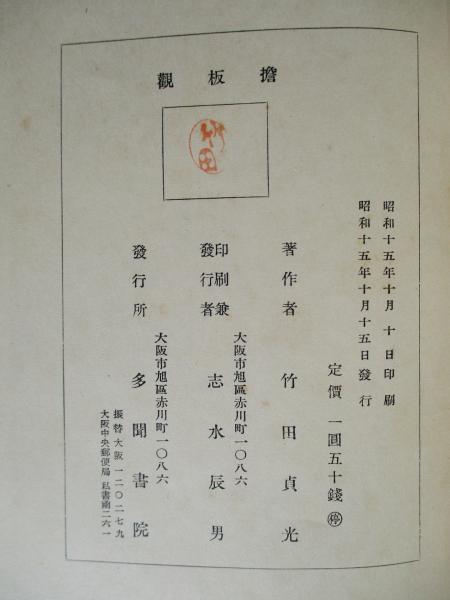 擔板觀
竹田
昭和十五年十月十日印刷
昭和十五年十月十五日發行
定價一圓五十錢 停
著作者 竹田貞光
大阪市旭區赤川町一〇八六
印刷兼發行者 志水辰男
大阪市旭區赤川町一〇八六
發行所 多聞書院
振替大阪一二〇二七九
大阪中央郵便局私書凾二六一